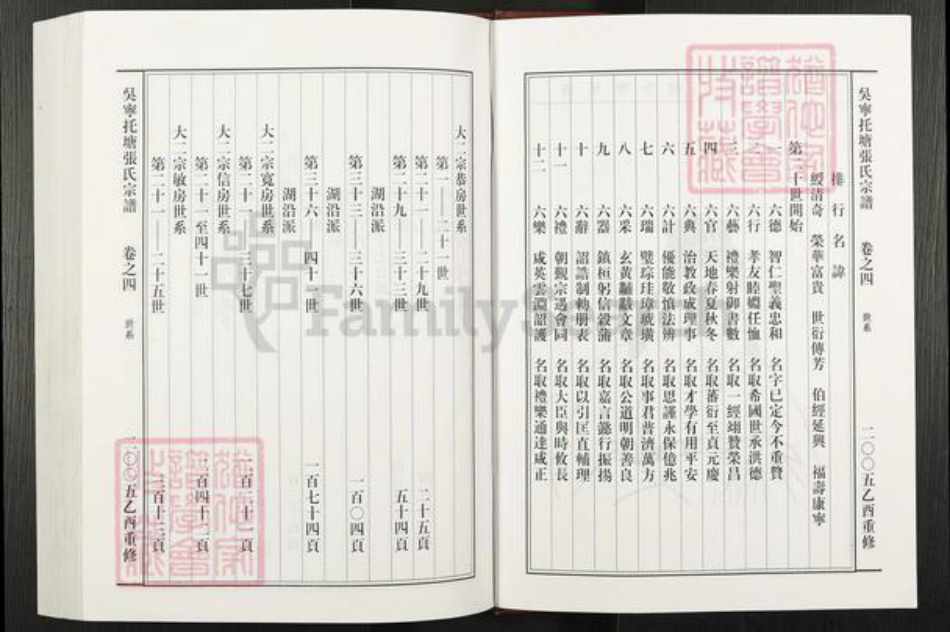 吳寧托塘張氏宗譜 卷之四 世系 二〇〇五乙酉重修
排行名諱
綬清奇 榮華富貴 世衍傳芳 伯經延興 福壽康寧
第二十世開始
一 六德 智仁聖義忠和 名字已定今不重贅
二 六行 孝友睦婣任恤 名取希國世承洪德
三 六藝 禮樂射御書數 名取一經翊贊榮昌
四 六官 天地春夏秋冬 名取蕃衍至貞元慶
五 六典 治教政成理事 名取才學有用平安
六 六計 優能敬慎法辨 名取思謹永保億兆
七 六瑞 璧琮珪璋琥璜 名取事君普濟萬方
八 六采 玄黃黼黻文章 名取公道明朝善良
九 六器 鎮桓躬信穀蒲 名取嘉言懿行振揚
十 六辭 詔誥制勅册表 名取以引匡直輔理
十一 六禮 朝覲宗遇會同 名取大臣與時攸長
十二 六樂 咸英雲淵韶護 名取禮樂通達咸正
大二宗恭房世系
第一——二十一世
第二十一——二十九世 二十五頁
第二十九——三十三世 五十四頁
湖沿派
第三十三——三十六世 一百〇四頁
湖沿派
第三十六——四十一世 一百七十四頁
湖沿派
大二宗寬房世系
第二十一——三十七世 二百一十一頁
大二宗信房世系
第二十一至四十一世 二百四十二頁
大二宗敏房世系
第二十一——二十五世 三百十三頁
吳寧托塘張氏宗譜 卷之四 世系 二〇〇五乙酉重修
FamilySearch